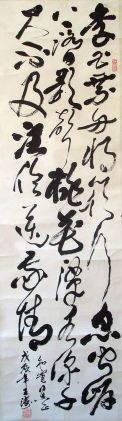 李白乘舟将欲行忽闻岸
上踏歌声桃花潭水深千
尺不及汪伦送我情
戊辰年王